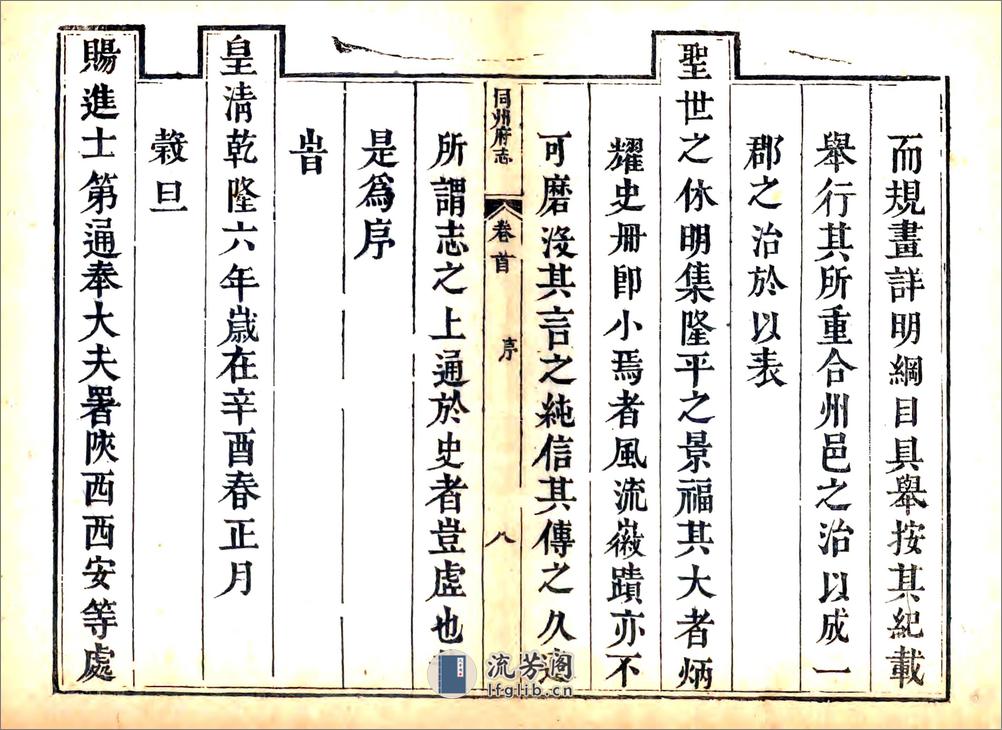 而規畫詳明綱目具舉按其紀載
舉行其所重合州邑之治以成一
郡之治於以表
聖世之休明集隆平之景福其大者炳
耀史冊卽小焉者風流徽蹟亦不
可磨沒其言之純信其傳之久
同州府志
卷首
序
八
所謂志之上通於史者豈虛也
是爲序
旹
皇清乾隆六年歲在辛酉春正月
穀旦
賜進士第通奉大夫署陝西西安等處
流芳閣
lfglib.cn